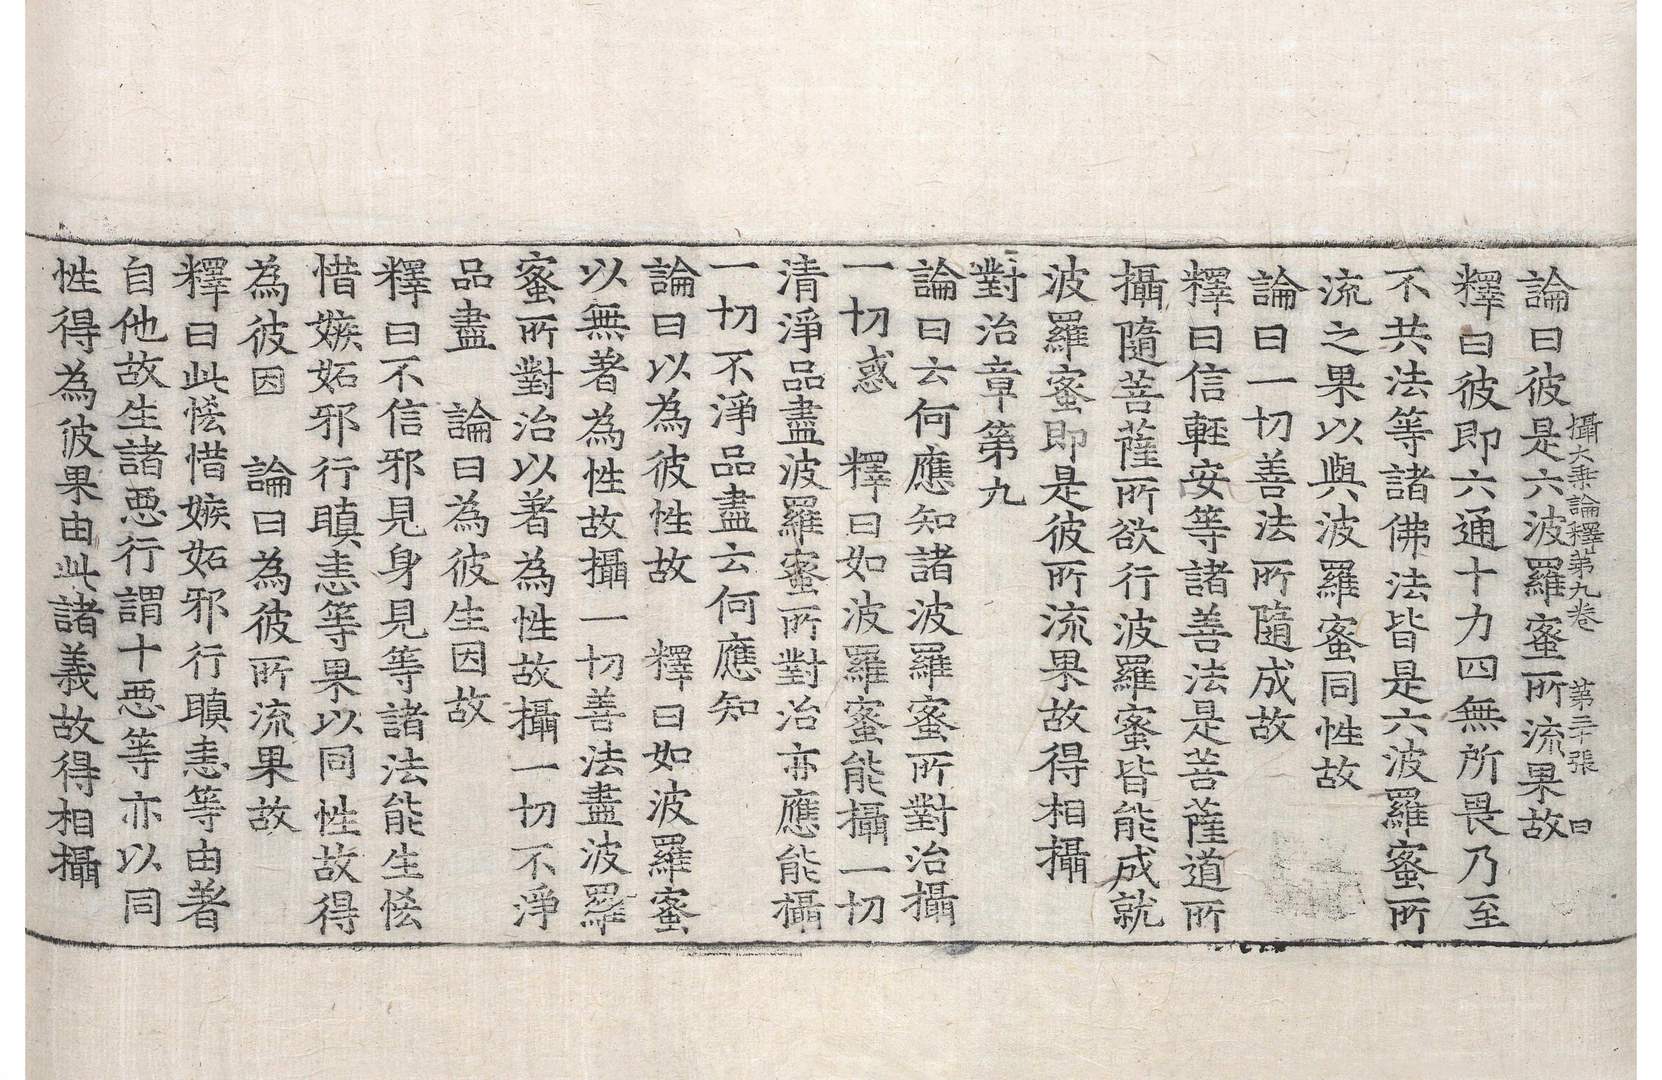 攝大乘論釋第九卷　第二十張　曰
論曰彼是六波羅蜜所流果故
釋曰彼即六通十力四無所畏乃至
不共法等諸佛法皆是六波羅蜜所
流之果以與波羅蜜同性故
論曰一切善法所隨成故
釋曰信輕安等諸善法是菩薩道所
攝隨菩薩所欲行波羅蜜皆能成就
波羅蜜即是彼所流果故得相攝
對治章第九
論曰云何應知諸波羅蜜所對治攝
一切惑　釋曰如波羅蜜能攝一切
清淨品盡波羅蜜所對治亦應能攝
一切不淨品盡云何應知
論曰以為彼性故　釋曰如波羅蜜
以無著為性故攝一切善法盡波羅
蜜所對治以著為性故攝一切不淨
品盡　論曰為彼生因故
釋曰不信邪見身見等諸法能生悋
惜嫉妬邪行瞋恚等果以同性故得
為彼因　論曰為彼所流果故
釋曰此悋惜嫉妬邪行瞋恚等由著
自他故生諸惡行謂十惡等亦以同
性得為彼果由此諸義故得相攝